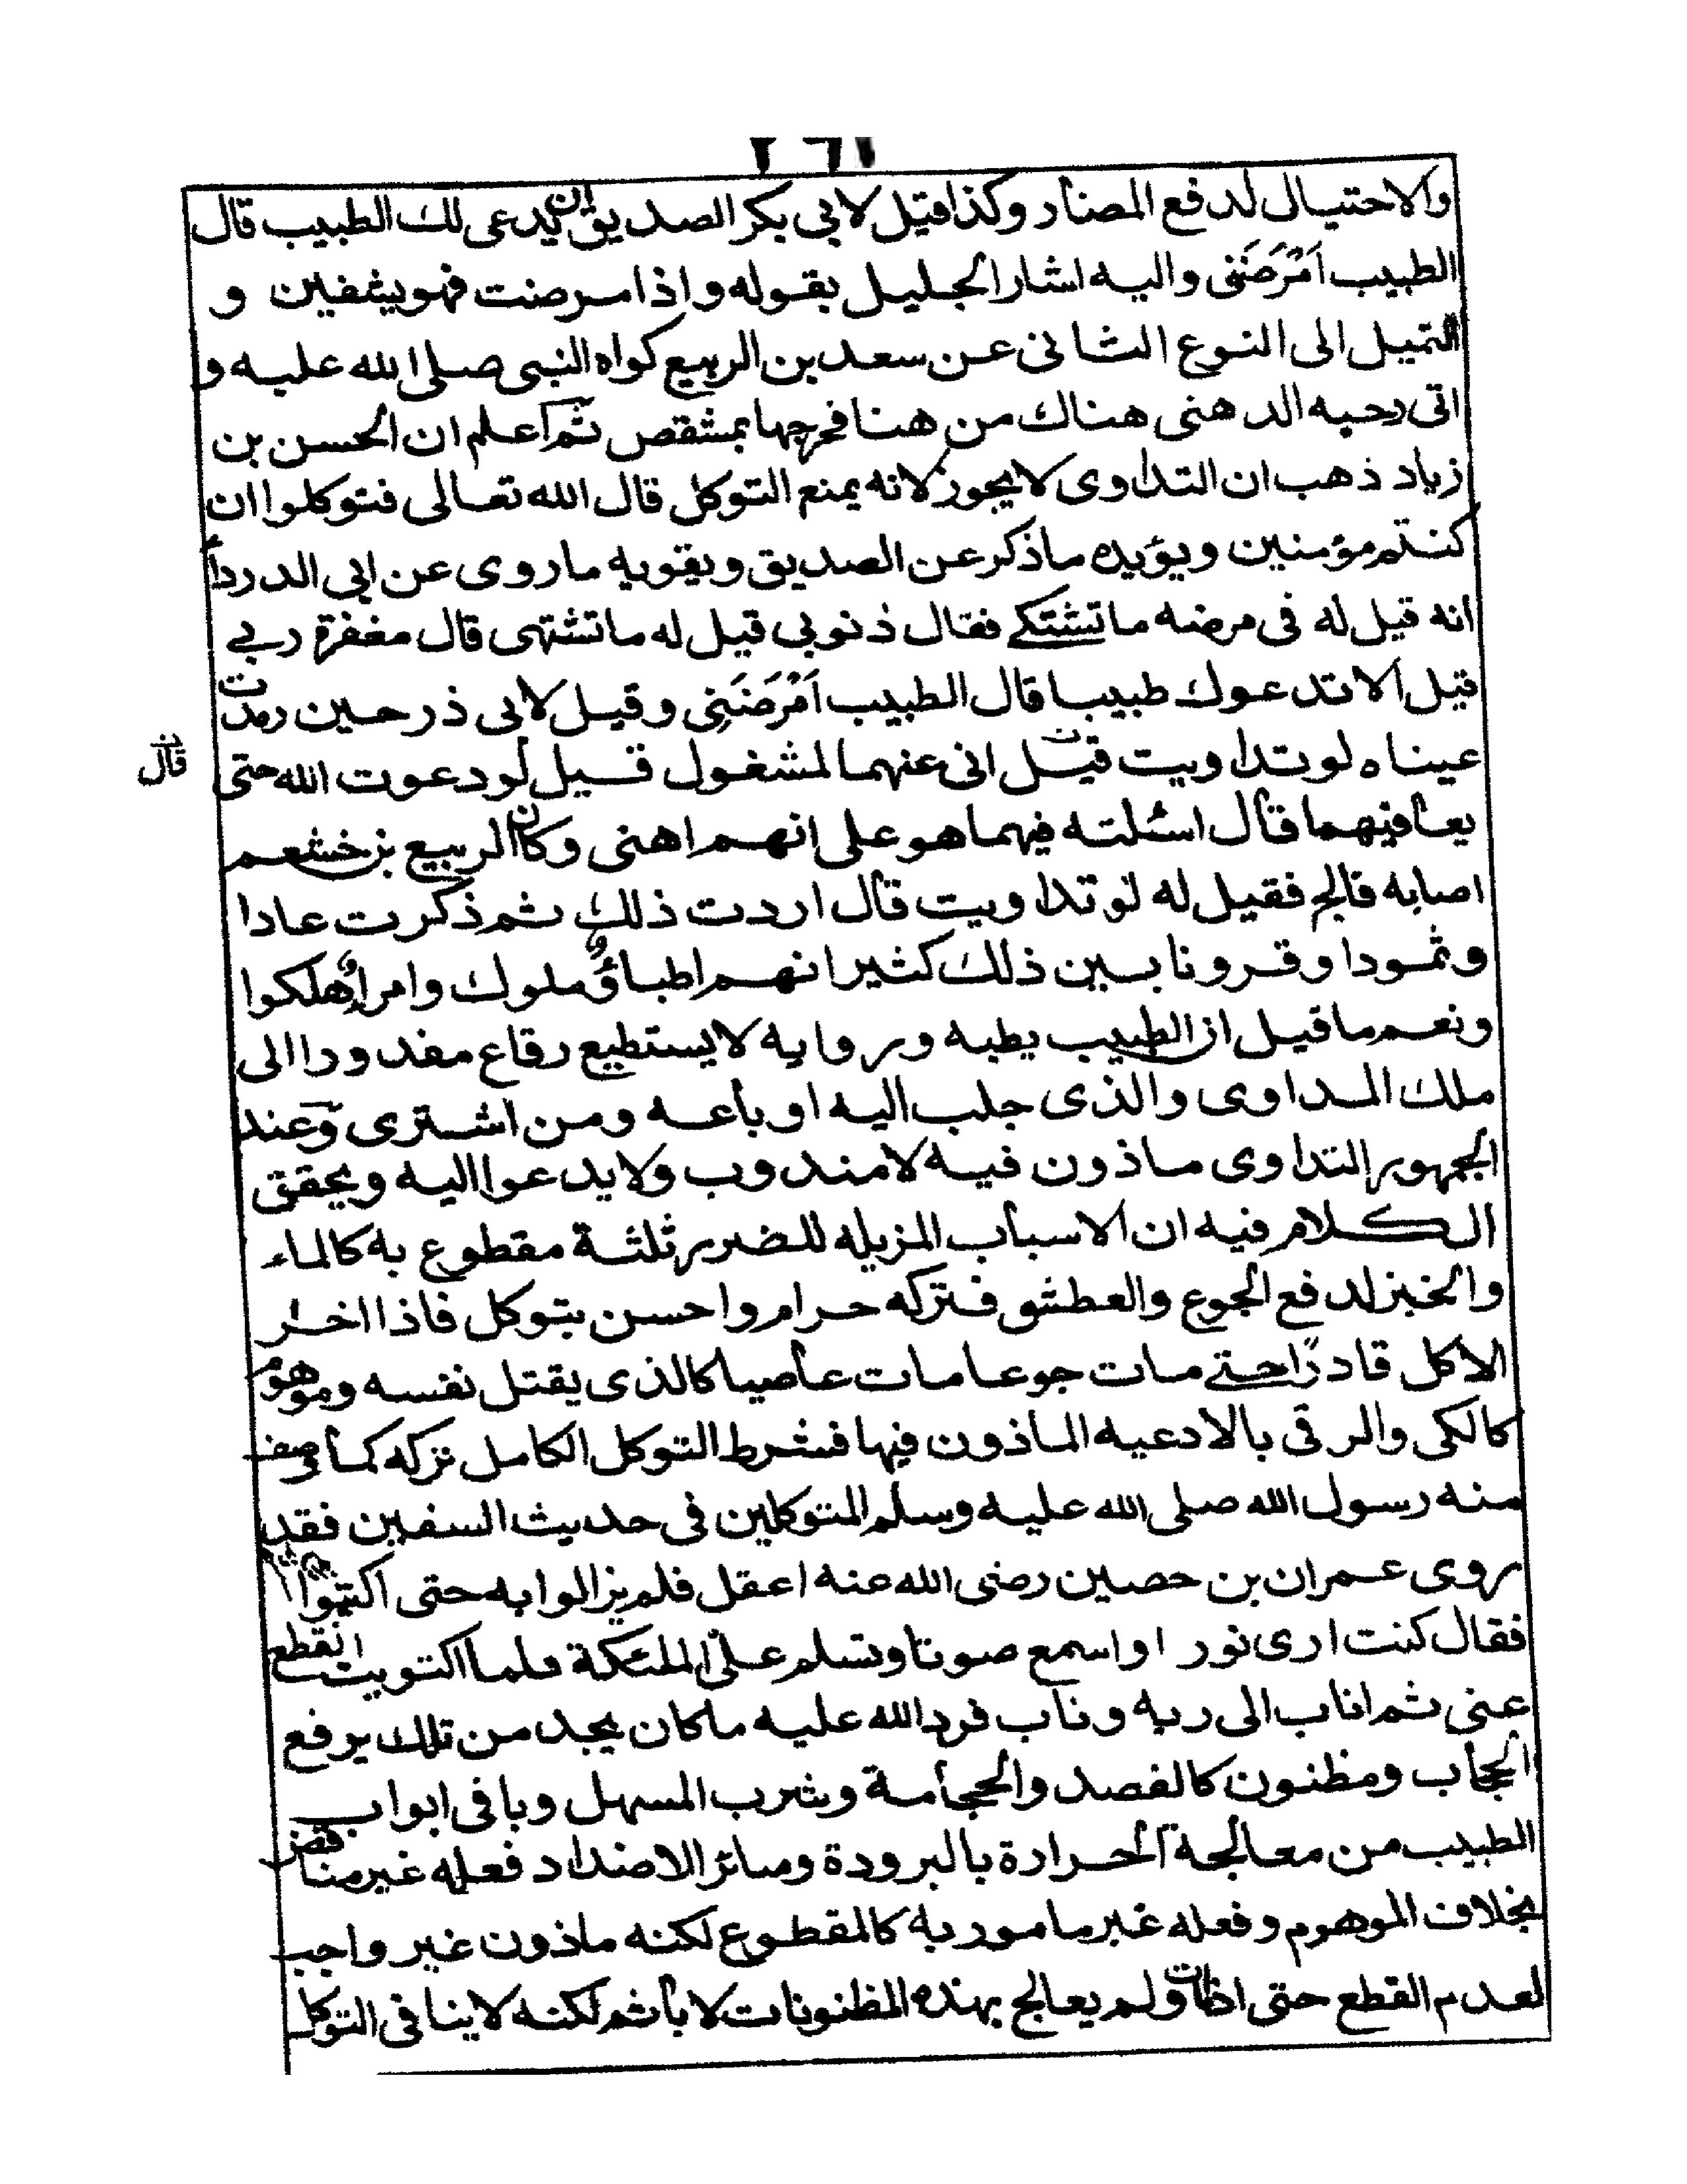 والاحتيال لدفع المضار وكذا قيل لابي بكر الصديق ان يدعى لك الطبيب قال
الطبيب اَمْرَضَنَنى واليه اشار الجليل بقوله واذا مرضت فهو يشفين و
التميل الى النوع الثانى عن سعد بن الربيع كواه النبى صلى الله عليه و
اتى رحبه الدهنى هناك من هنا فجرحها بمشقص ثم اعلم ان الحسن بن
زياد ذهب ان التداوى لا يجوز لانه يمنع التوكل قال الله تعالى فتوكلوا ان
كنتم مؤمنين ويؤيده ماذكر عن الصديق ويقويه ماروى عن ابى الدرداء
انه قيل له فى مرضه ماتشتكے فقال ذنوبى قيل له ماتشتهى قال مغفرة ربے
قيل الاتدعوك طبيبا قال الطبيب اَمْرَضَنِى وقيل لابى ذر حين رمدت
عيناه لو تداويت قيل انى عنهما لمشغول قيل لو دعوت الله حتى
قال
يعافيهما قال اسئلته فيهما هو على انهم اهنى وكان الربيع بن خشعم
اصابه فالج فقيل له لو تداويت قال اردت ذلك ثم ذكرت عادا
وثمودا وقرونا بين ذلك كثيرا انهم اطباؤ ملوك وامراؤ هلكوا
ونعم ماقيل ان الطبيب يطبه وروايه لايستطيع رقاع مفدورا الى
ملك المداوى والذى جلب اليه او باعه ومن اشترى وعند
الجمهور التداوى ماذون فيه لا مندوب ولا يدعوا اليه ويحقق
الكلام فيه ان الاسباب المزيله للضرر ثلثة مقطوع به كالماء
والخبز لدفع الجوع والعطش فتركه حرام واحسن بتوكل فاذا اخار
الاكل قادرًا حتے مات جوعا مات عاصيا كالذى يقتل نفسه وموهوم
كالكى والرقى بالادعيه الماذون فيها فشرط التوكل الكامل تركه كما فى صف
منه رسول الله صلى الله عليه وسلم المتوكلين فى حديث السفين فقد
روى عمران بن حصين رضى الله عنه اعقل فلم يزالوا به حتى
فقال كنت ارى نور او اسمع صوتا وتسلم علىّ الملئكة فلما اكتويت انقطع
عنى ثم اناب الى ربه وناب فرد الله عليه ماكان يجد من تلك يرفع
الحجاب ومظنون كالفصد والحجامة وشرب المسهل وباقى ابواب
الطبيب من معالجة الحرارة بالبرودة وسائر الاضداد فعله غير مناقض
بخلاف الموهوم وفعله غير مامور به كالمقطوع لكنه ماذون غير واجب
لعدم القطع حتى اذامات ولم يعالج بهذه المظنونات لا ياثم لكنه لاينافى التوكل